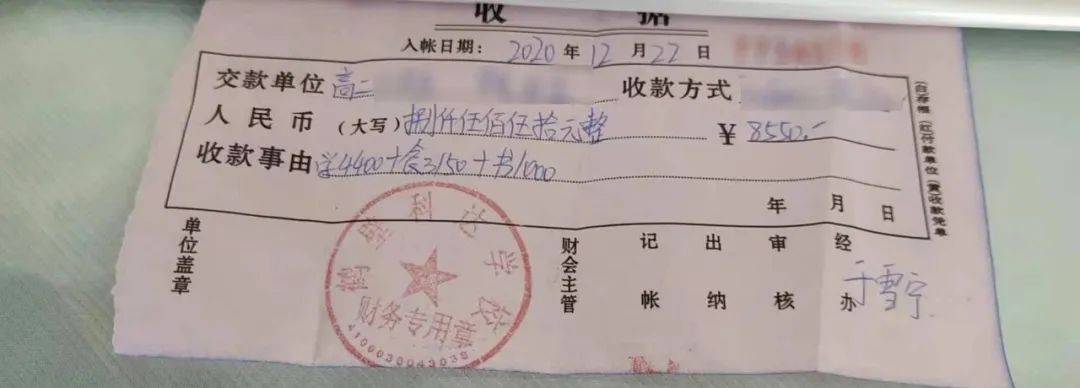 收 据
入帐日期: 2020年12月22日
交款单位 高二 收款方式
人民币(大写)捌仟伍佰伍拾元整 ¥8550.-
收款事由 学4400+食3150+书1000
年 月 日
(白)存根 (红)付款单位 (黄)收款凭单
单位盖章
财会主管
记帐
出纳
审核
经办
于雪宁
科达学校
财务专用章
4106030043038